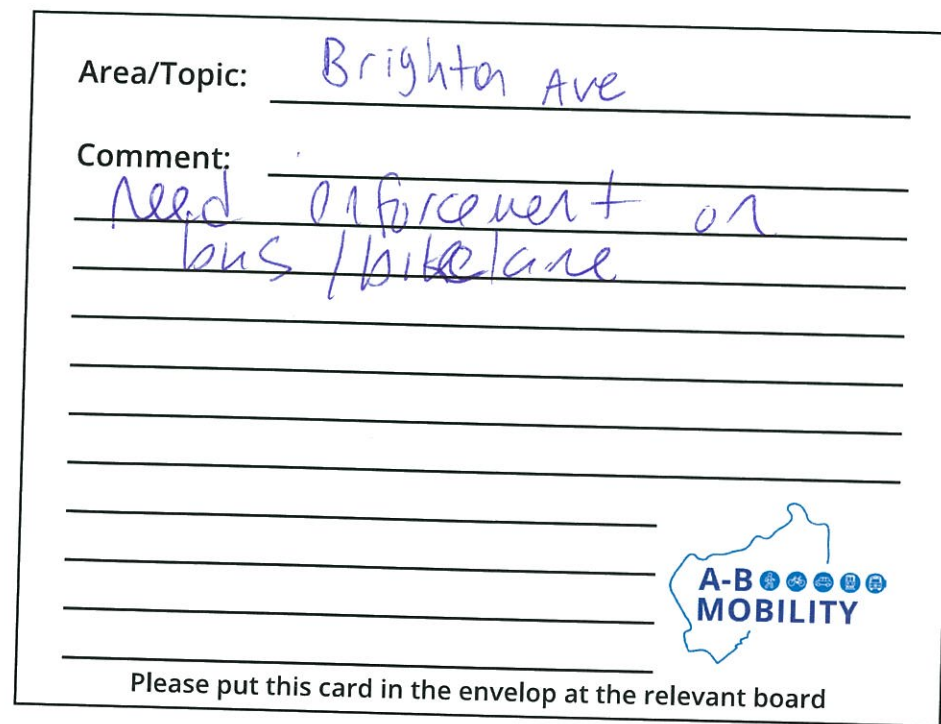 Area/Topic: Brighton Ave
Comment:
need enforcement on
bus / bike lane
A-B
MOBILITY
Please put this card in the envelop at the relevant board